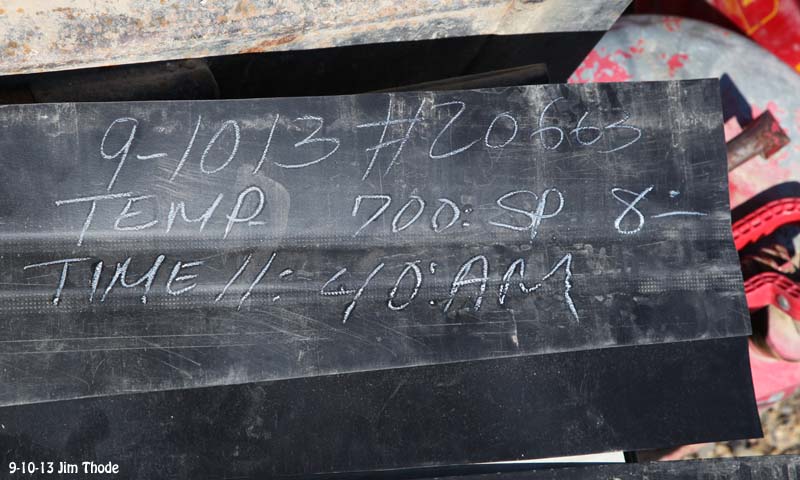 9-1013 #20663
TEMP. 700: SP 8:-
TIME 11: 40: AM
9-10-13 Jim Thode